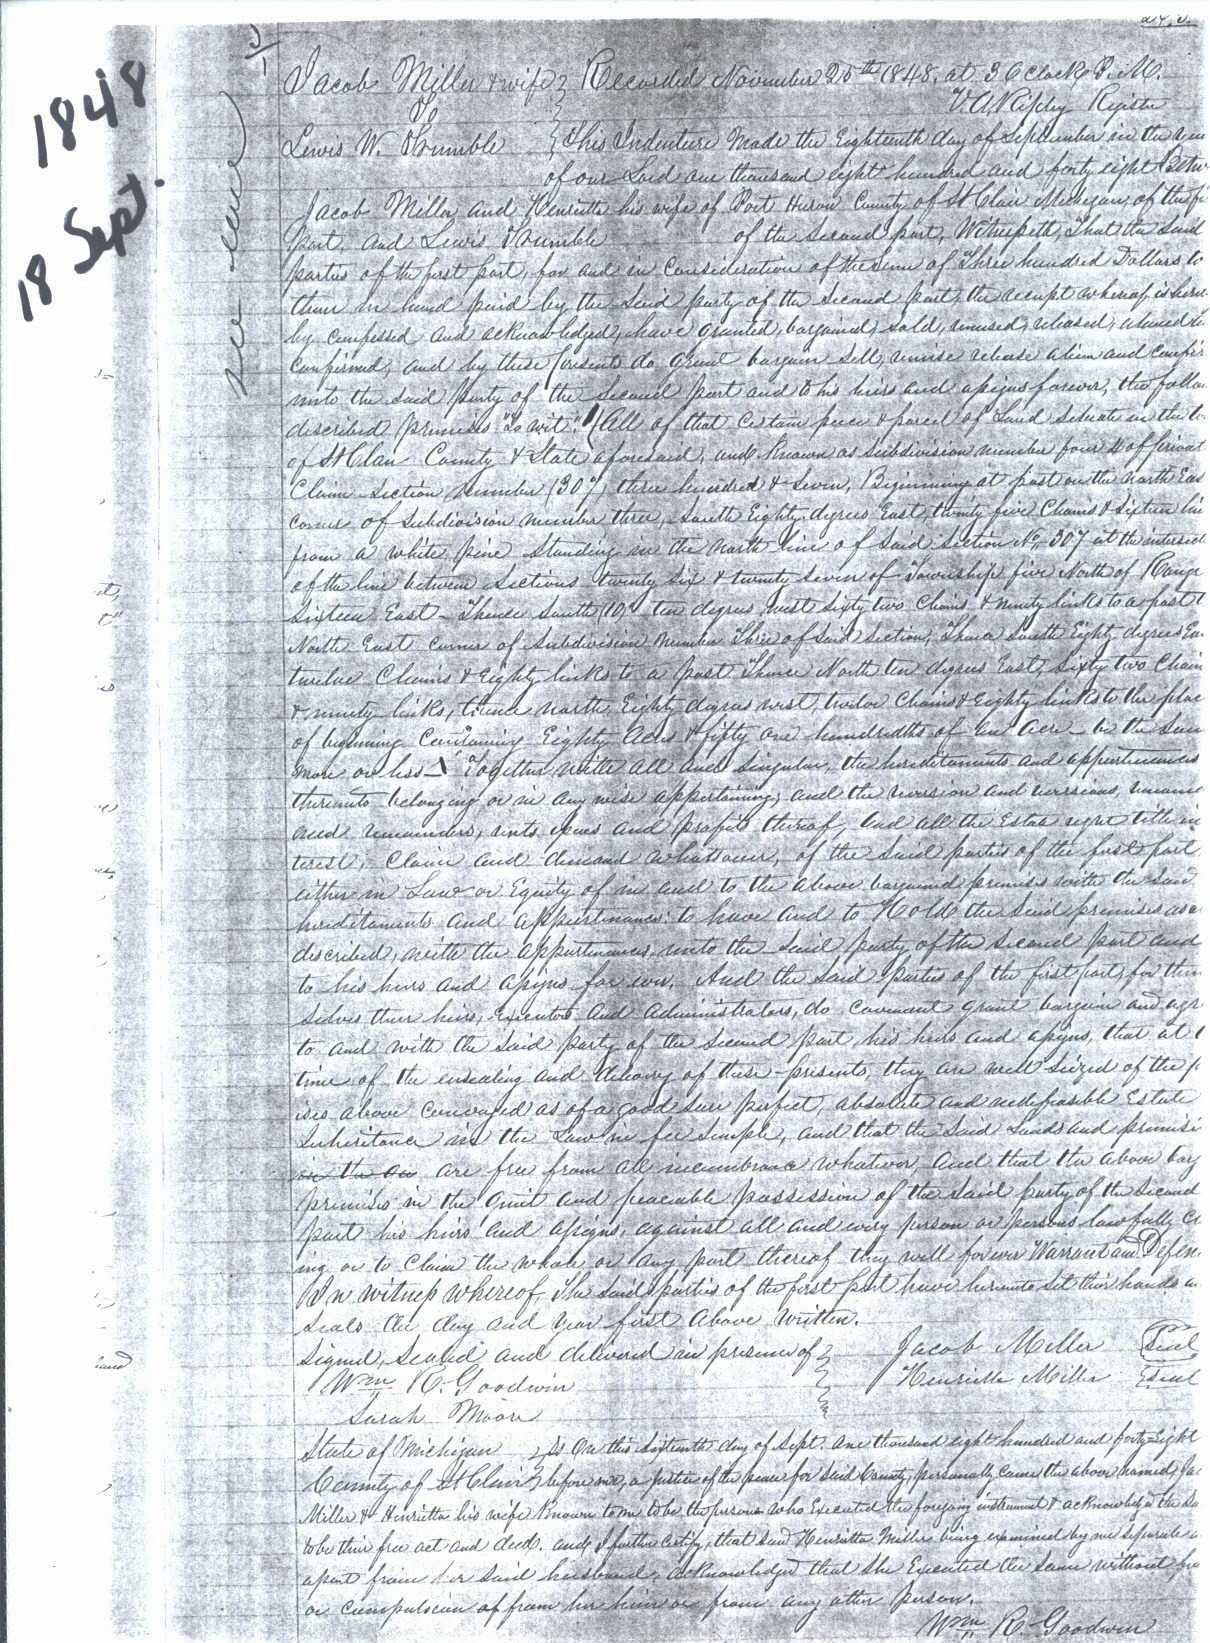 1848
18 Sept.
Jacob Miller & wife } Recorded November 25th 1848. at 3 O clock P. M.
To } V. A. Ripley Register
Lewis W. Trumble } This Indenture Made the Eighteenth day of September in the
of our Lord one thousand eight hundred and forty eight Betw
Jacob Miller and Henrietta his wife of Port Huron County of St Clair Michigan, of the fi
part, and Lewis Trumble of the Second part, Witnesseth, That the Said
parties of the first part, for and in Consideration of the sum of Three hundred Dollars to
them in hand paid by the Said party of the Second part, the receipt whereof is here
by confessed and acknowledged, have granted, bargained, sold, remised, released, aliened
confirmed, and by these presents do grant bargain sell, remise release alien and confir
unto the said Party of the Second part and to his heirs and assigns forever, the follo
described premises "To wit." (All of that Certain piece & parcel of Land situate in the
of St Clair County & State aforesaid, and Known as Subdivision number four 4 of Privat
Claim Section Number (307) three hundred & Seven, Beginning at post on the north Eas
corner of Subdivision number three, South Eighty degrees East, twenty five Chains & Sixteen li
from a white pine Standing in the north line of Said Section No. 307 at the intersect
of the line between Sections twenty Six & twenty Seven of Township five North of Range
Sixteen East - Thence South (10) ten degrees west Sixty two Chains & ninety links to a post
North East corner of Subdivision number Three of Said Section, Thence South Eighty degrees Ea
twelve Chains & Eighty links to a post Thence North ten degrees East, Sixty two Chain
& ninety links, thence north Eighty degrees west, twelve Chains & Eighty links to the plac
of beginning Containing Eighty Acres & fifty one hundredths of an Acre - be the Same
more or less - Together with all and Singular, the hereditaments and appurtenances
thereunto belonging or in any wise appertaining, and the reversion and reversions, remaind
and remainders, rents issues and profits thereof, and all the Estate right title in
terest, Claim and demand whatsoever, of the Said parties of the first part
either in Law or Equity of in and to the above bargained premises with the Said
hereditaments and appurtenances: to have and to Hold the Said premises as
described, with the appurtenances, unto the Said party of the Second part and
to his heirs and assigns for ever. And the Said parties of the first part, for them
Selves their heirs, Executors and administrators, do Covenant grant bargain and agr
to and with the Said party of the Second part, his heirs and assigns, that at
time of the ensealing and delivery of these presents, they are well Seized of the p
ises above Conveyed as of a good Sure perfect, absolute and indefeasible Estate
Inheritance in the Law in fee Simple, and that the Said Lands and premis
are free from all incumbrance whatever, and that the above barg
premises in the quiet and peaceable possession of the Said party of the Second
part his heirs and assigns, against all and every person or persons lawfully
ing or to Claim the whole or any part thereof they will forever Warrant and Defen
In witness whereof, The Said parties of the first part have hereunto Set their hands
seals the day and year first above written.
Signed, Sealed and delivered in presence of } Jacob Miller Seal
Wm R. Goodwin } Henrietta Miller Seal
Sarah Moore
State of Michigan } On this Sixteenth day of Sept. one thousand eight hundred and forty Eight
County of St Clair } before me, a justice of the peace for Said County, personally came the above named, Jac
Miller & Henrietta his wife Known to me to be the persons who Executed the foregoing instrument & acknowledged the Sa
to be their free act and deed. and I further Certify, that Said Henrietta Miller being examined by me Separate
apart from her Said husband, acknowledged that She Executed the Same without
or compulsion of from her him or from any other person.
Wm R. Goodwin